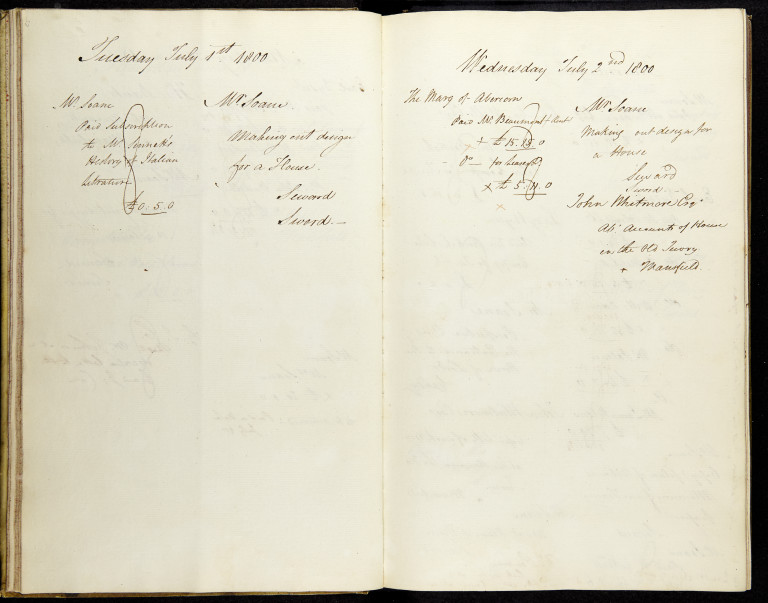 Tuesday July 1st 1800
Mr Soane
Paid Subscription
to Mr Sinnett's
History of Italian
£0.5.0
Mr Soane
Making out design
for a House.
Seward
Sword.—
Wednesday July 2nd 1800
The Marq of Abercorn
Paid Mr. Beaumont
+ £15.15.0
Do — for
× £5. .0
×
Mr Soane
Making out design for
a House
Seward
Sword.—
John Whitmore Esqr
Abt Accounts of House
in the Old Jewry
+ Mansfield.